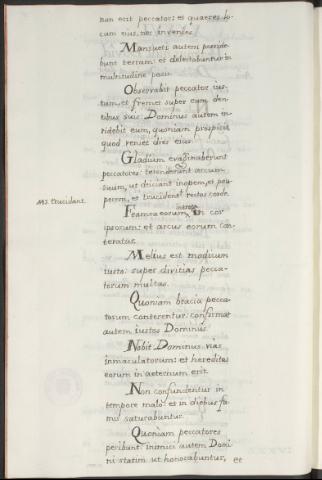 non erit peccator: et quaeres lo-
cum eius, nec invenies.
Mansueti autem posside-
bunt terram: et delectabuntur in
multitudine pacis.
Observabit peccator ius-
tum: et fremet super eum den-
tibus suis. Dominus autem in-
ridebit eum, quoniam prospicit
quod veniet dies eius.
Gladium evaginaberunt
peccatores: tetenderunt arcum
suum, ut deiciant inopem, et pau-
perem, et trucident rectos corde.
Ms. trucidant.
Framea eorum, intret in cor
ipsorum: et arcus eorum con-
teratur.
Melius est modicum
iusto: super divitias pecca-
torum multas.
Quoniam bracia pecca-
torum conterentur: confirmat
autem iustos Dominus.
Nobit Dominus vias
inmaculatorum: et hereditas
eorum in aeternum erit.
Non confundentur in
tempore malo: et in diebus fa-
mis saturabuntur.
Quoniam peccatores
peribunt. Inimici autem Domi-
ni statim ut honorabuntur, et